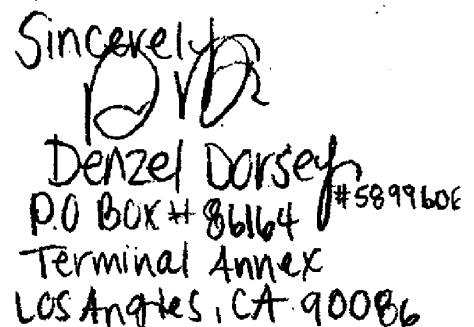 Sincerely
Denzel Dorsey
#5899606
P.O BOX # 86164
Terminal Annex
Los Angles, CA 90086